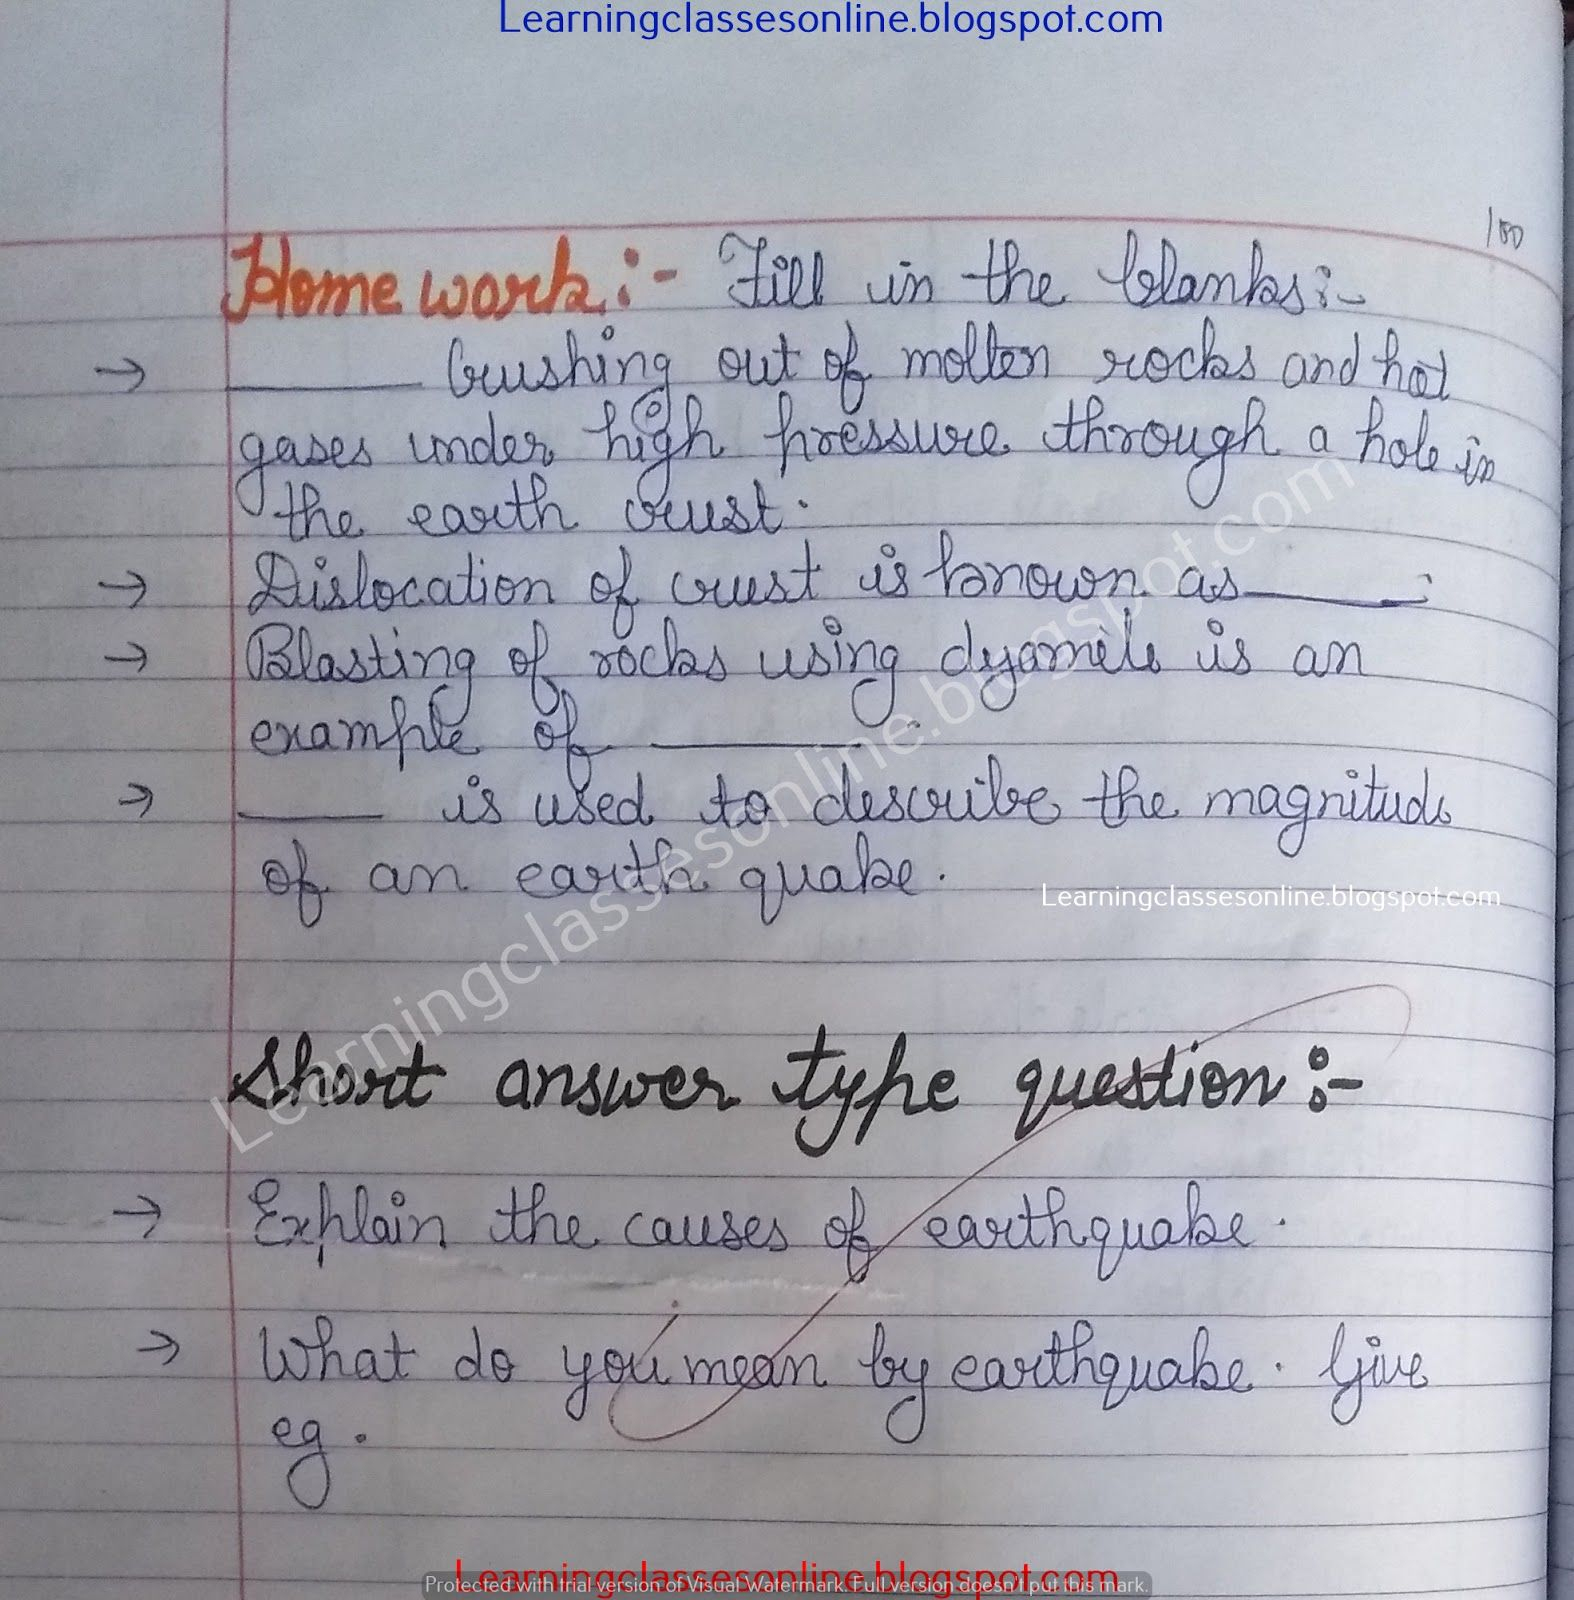 Learningclassesonline.blogspot.com
100
Home work:- Fill in the blanks:-
→ ______ Gushing out of molten rocks and hot
gases under high pressure through a hole in
the earth crust.
→ Dislocation of crust is known as ______.
→ Blasting of rocks using dyamite is an
example of ______.
→ ______ is used to describe the magnitude
of an earth quake.
Learningclassesonline.blogspot.com
Learningclassesonline.blogspot.com
Short answer type question:-
→ Explain the causes of earthquake.
→ What do you mean by earthquake. Give
eg.
Learningclassesonline.blogspot.com
Protected with trial version of Visual Watermark. Full version doesn't put this mark.